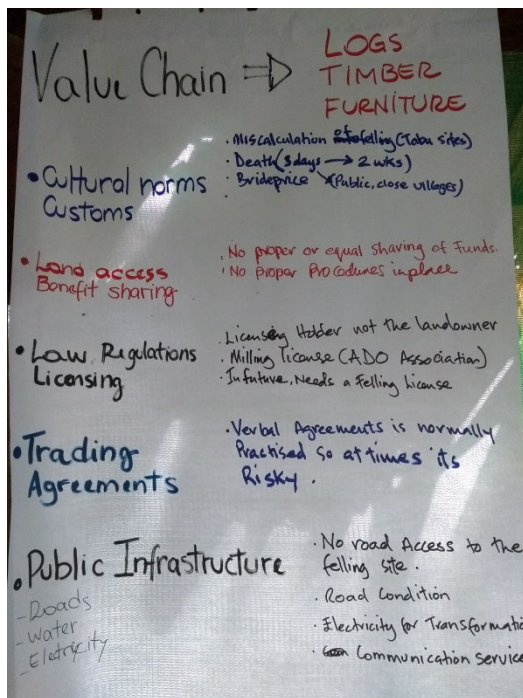 Value Chain ⇒ LOGS
TIMBER
FURNITURE
• Cultural norms
Customs
• Miscalculation of felling (Tabu sites)
• Death (3days → 2 wks)
• Brideprice (Public, close villages)
• Land access
Benefit sharing
• No proper or equal sharing of funds.
• No proper Procedures inplace
• Law, Regulations
Licensing
• Licensing Holder not the landowner
• Milling License (ADO Association)
• Infuture, Needs a Felling License
• Trading
Agreements
• Verbal Agreements is normally
Practised so at times its
Risky.
• Public Infrastructure
- Roads
- Water
- Eletricity
• No road Access to the
felling site.
• Road Condition
• Electricity for Transformatio
• Communication service